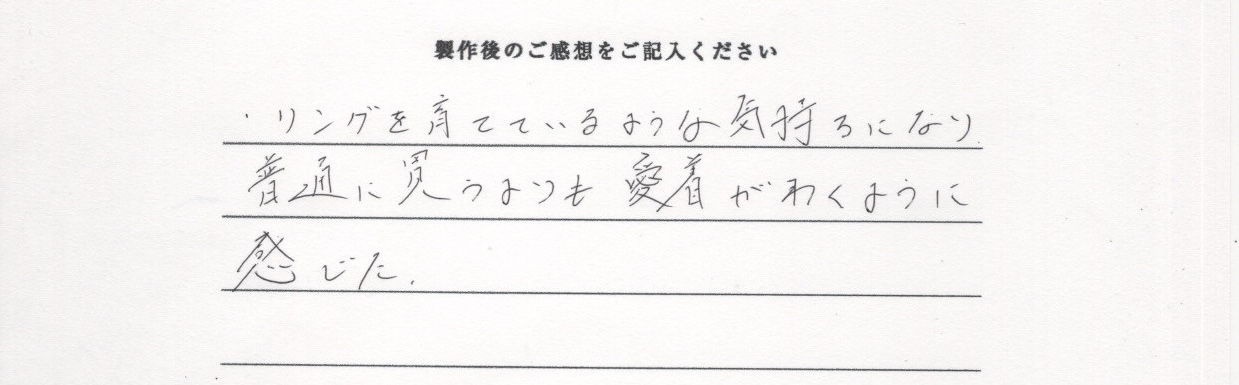 製作後のご感想をご記入ください
・リングを育てているような気持ちになり
普通に買うよりも愛着がわくように
感じた.